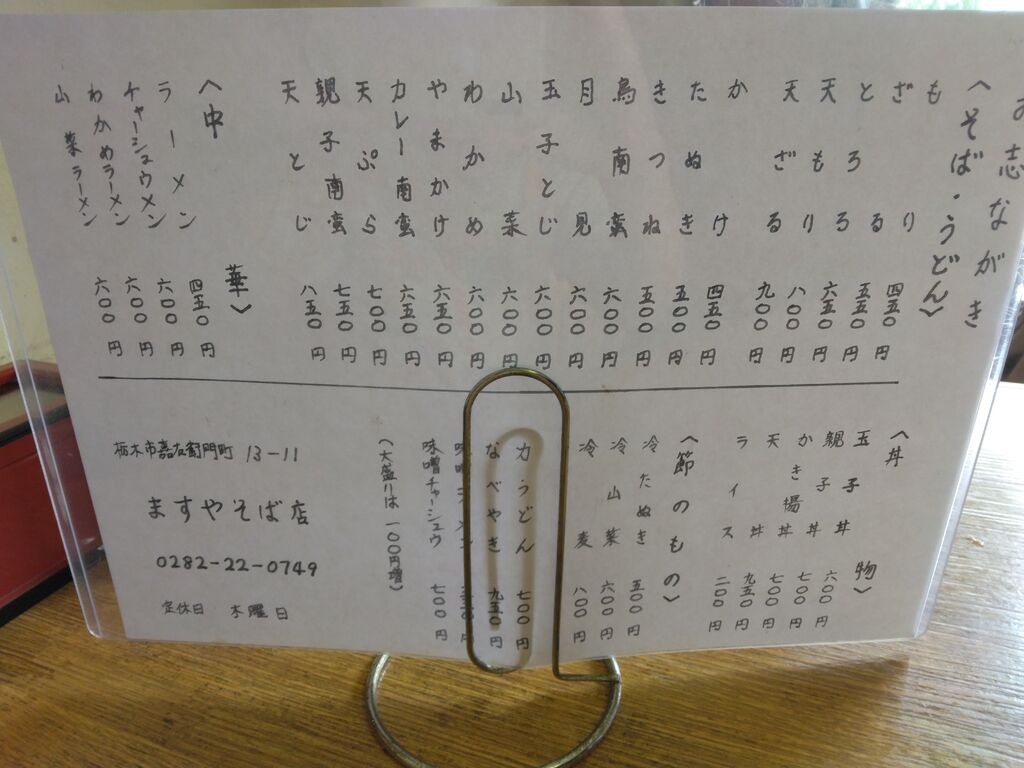 お志ながき
〈そば・うどん〉
もり 四五〇円
ざる 五五〇円
とろろ 六五〇円
天もり 八〇〇円
天ざる 九〇〇円
かけ 四五〇円
たぬき 五〇〇円
きつね 五〇〇円
鳥南蛮 六〇〇円
月見 六〇〇円
玉子とじ 六〇〇円
山菜 六〇〇円
わかめ 六〇〇円
やまかけ 六五〇円
カレー南蛮 六五〇円
天ぷら 七〇〇円
親子南蛮 七五〇円
天とじ 八五〇円
〈中華〉
ラーメン 四五〇円
チャーシュウメン 六〇〇円
わかめラーメン 六〇〇円
山菜ラーメン 六〇〇円
〈丼物〉
玉子丼 六〇〇円
親子丼 七〇〇円
かき揚丼 七〇〇円
天丼 九五〇円
ライス 二〇〇円
〈節のもの〉
冷たぬき 五〇〇円
冷山菜 六〇〇円
冷麦 八〇〇円
力うどん 七〇〇円
なべやき 九五〇円
円
味噌チャーシュウ 七〇〇円
〈大盛りは一〇〇円増〉
栃木市嘉右衛門町 13-11
ますやそば店
0282-22-0749
定休日 木曜日